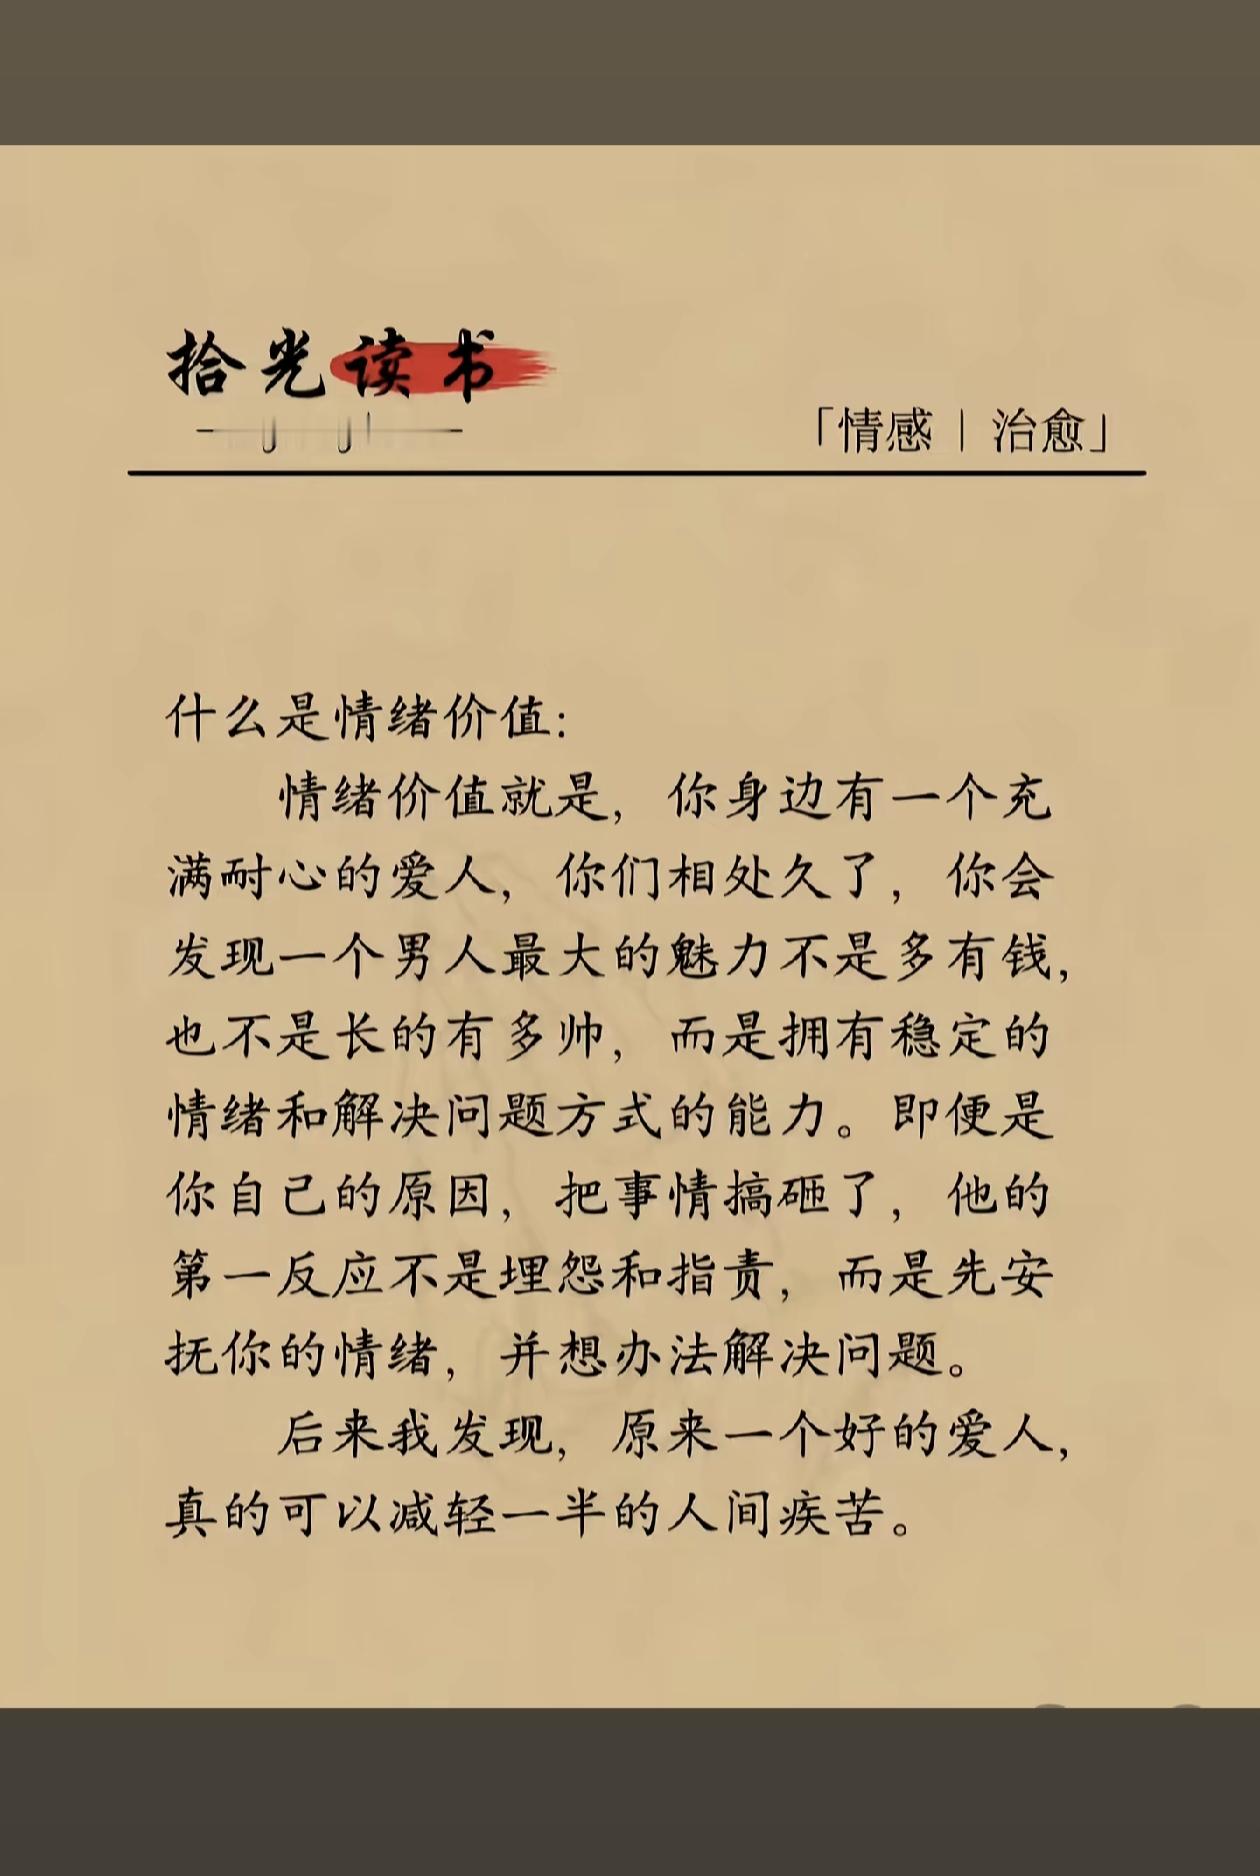 拾光读书
「情感 | 治愈」
什么是情绪价值：
情绪价值就是，你身边有一个充
满耐心的爱人，你们相处久了，你会
发现一个男人最大的魅力不是多有钱，
也不是长的有多帅，而是拥有稳定的
情绪和解决问题方式的能力。即便是
你自己的原因，把事情搞砸了，他的
第一反应不是埋怨和指责，而是先安
抚你的情绪，并想办法解决问题。
后来我发现，原来一个好的爱人，
真的可以减轻一半的人间疾苦。